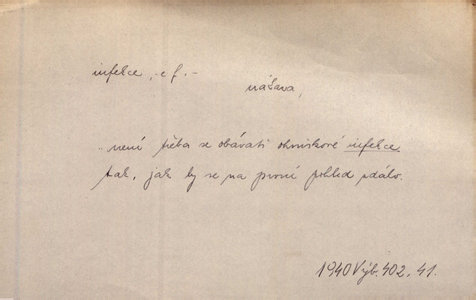 infekce, -e f. -
nášava,
..není třeba se obávati ohniskové infekce
tak, jak by se na první pohled zdálo.
1940 Výb. 402, 41.